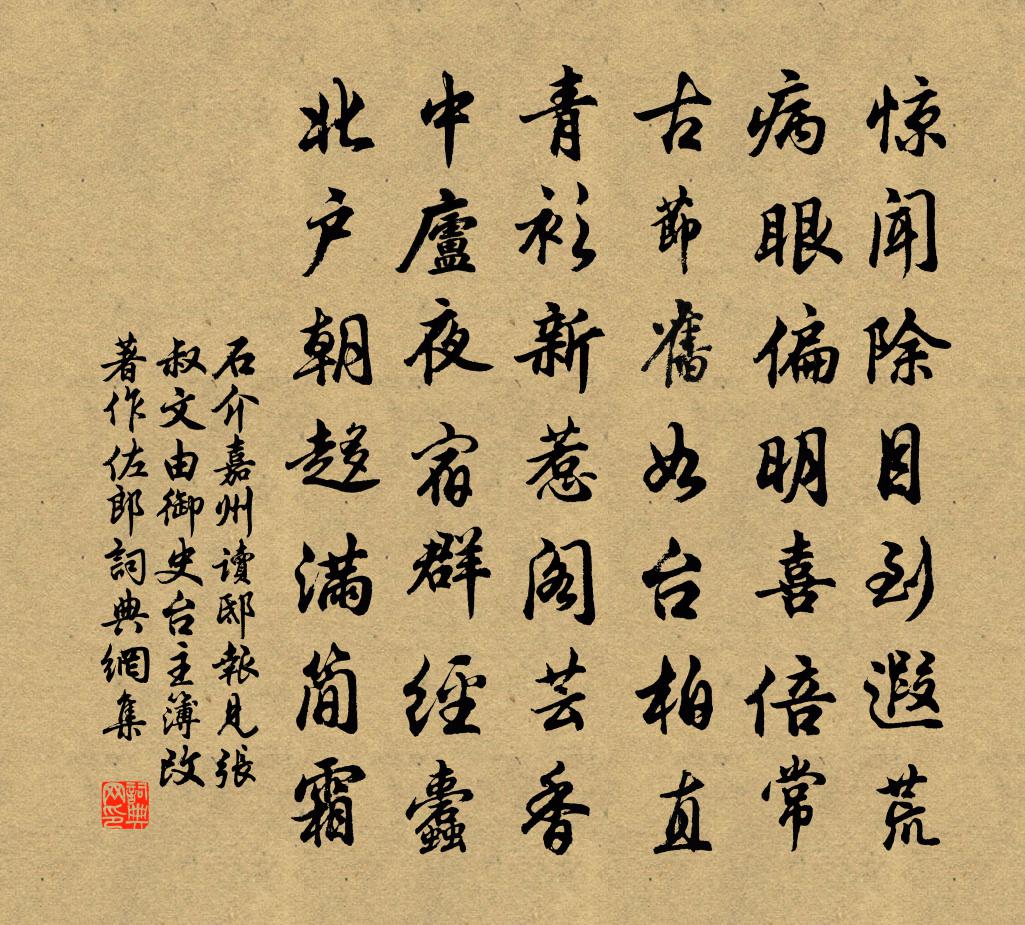 惊闻除目到遐荒
病眼偏明喜倍常
古节旧如台柏直
青衫新惹阁芸香
中廬夜宿群經蠹
北户朝趍满简霜
石介嘉州讀邸報見張
叔文由御史台主簿改
著作佐郎詞典網集
詞典
网印